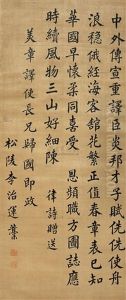 中外傳宣重譯臣炎邦才子賦侁侁使舟
浪穩俄經海客館花繁正值春章表已知
華國早懷柔同喜受 恩頻職方圖誌應
時續風物三山好細陳 律詩贈送
美章譯使長兄歸國即政
松陵李治運藁